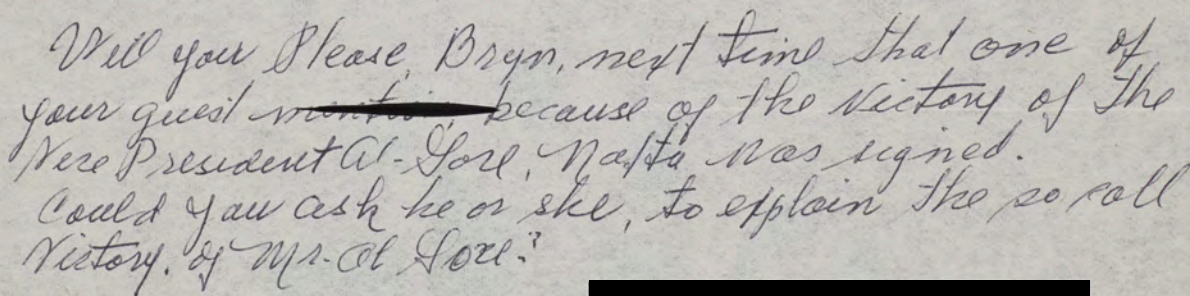 Will you Please, Bryn, next time that one of
your guest mention, because of the Victory of The
Vice President Al-Gore, Nafta was signed.
Could you ask he or she, to explain the so call
Victory. of Mr. Al Gore?